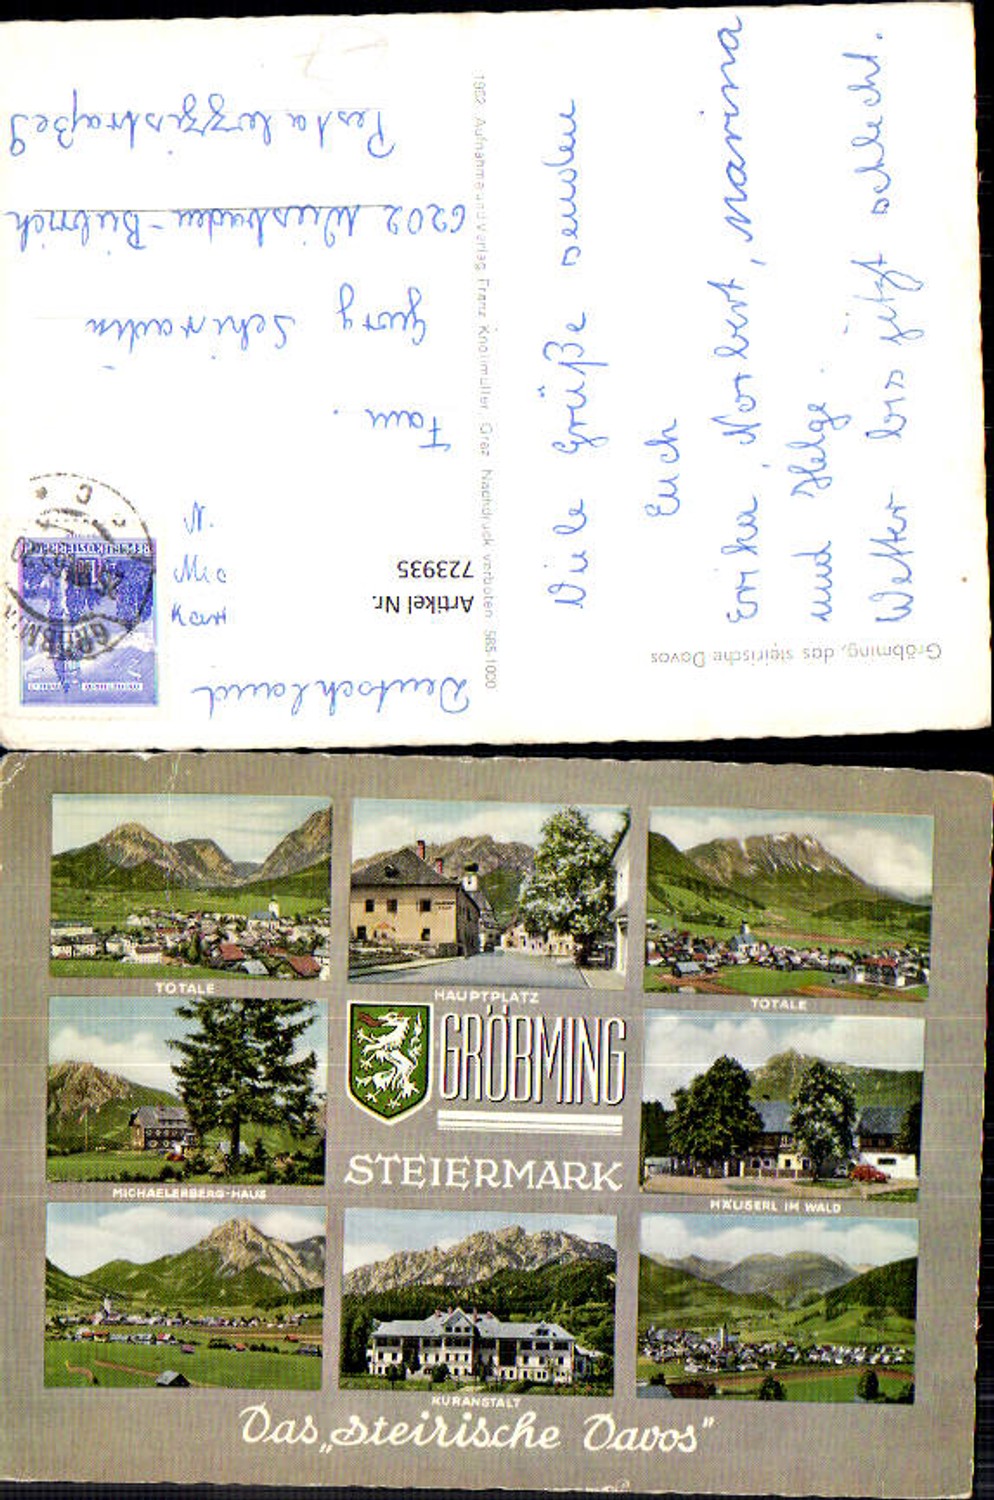 Gröbming, das steirische Davos
Viele Grüße senden
Euch
Erika, Norbert, Marina
und Helge.
Wetter bis jetzt schlecht.
1962 Aufnahme und Verlag Franz Knollmüller, Graz Nachdruck verboten 585 1000
REPUBLIK ÖSTERREICH
GRÖBMING
C
Deutschland
Artikel Nr.
723935
Fam.
Georg
6202 Wiesbaden-Biebrich
Pestalozzistraße 9
TOTALE
HAUPTPLATZ
TOTALE
MICHAELERBERG-HAUS
GRÖBMING
STEIERMARK
HÄUSERL IM WALD
KURANSTALT
Das „steirische Davos"